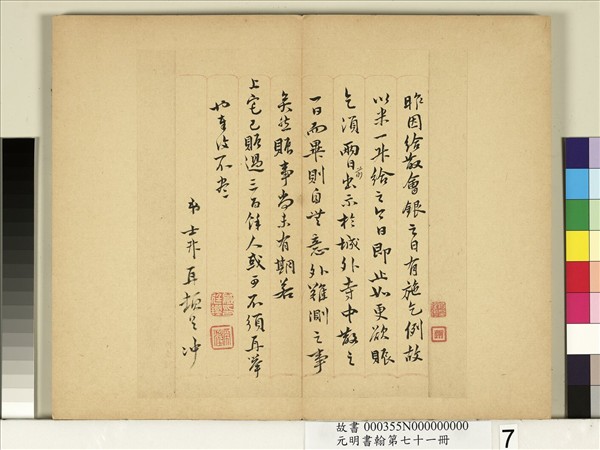 昨因給散會銀之日有施乞例故
以米一升給之今日即止如更欲賑
乞須兩日前出示於城外寺中散之
一日而畢則自無意外難測之事
矣然賑事尚未有期若
上宅已賑過三百餘人或可不須再舉
也草復不盡
弟士升再頓首 冲
故書 000355N000000000
元明書翰第七十一冊
7